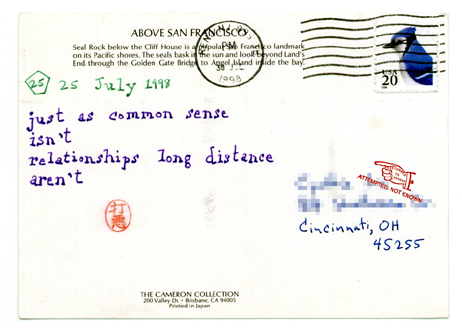 ABOVE SAN FRANCISCO
Seal Rock below the Cliff House is a popular San Francisco landmark
on its Pacific shores. The seals bask in the sun and look beyond Land's
End through the Golden Gate Bridge to Angel Island inside the bay.
PM
1998
USA
20
25 25 July 1998
just as common sense
isn't
relationships long distance
aren't
ATTEMPTED, NOT KNOWN
Cincinnati, OH
45255
THE CAMERON COLLECTION
200 Valley Dr. • Brisbane, CA 94005
Printed in Japan